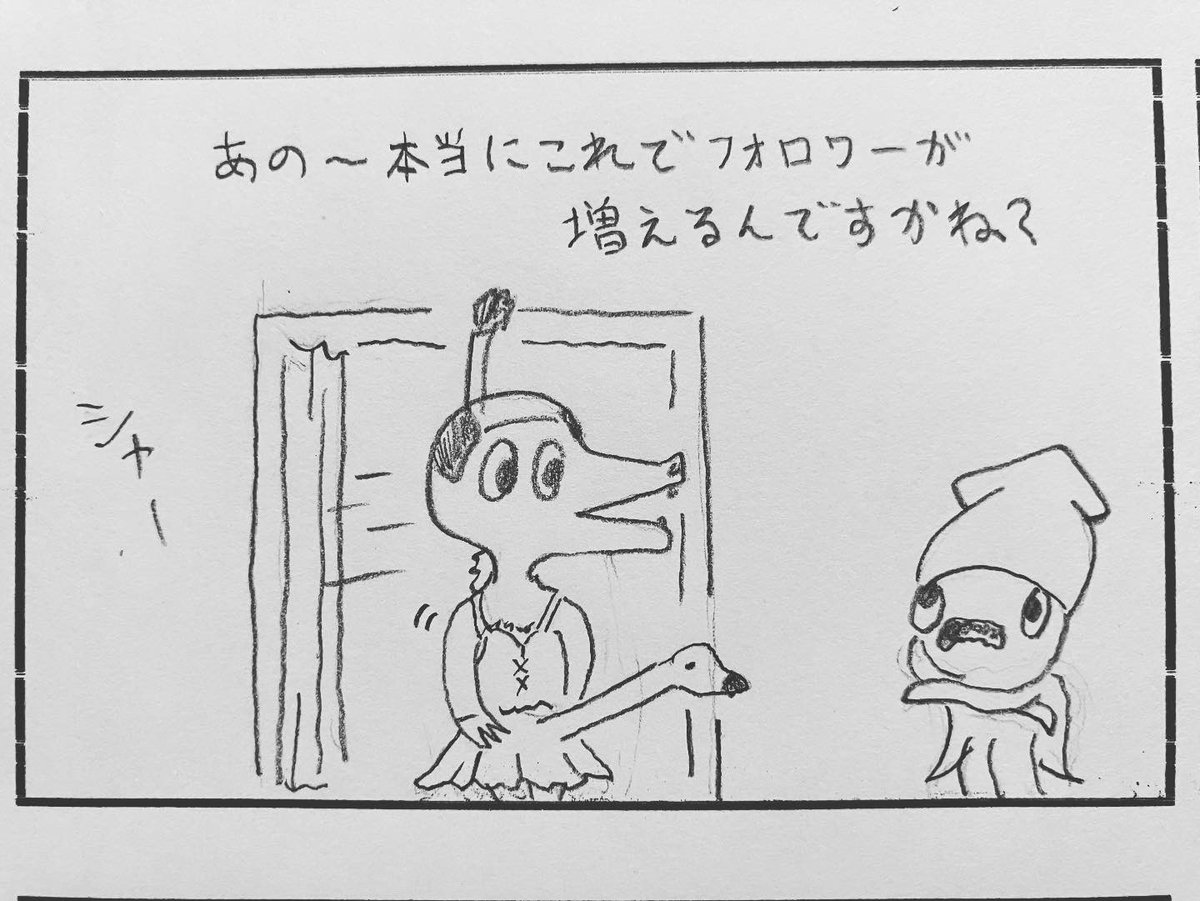 あの〜本当にこれでフォロワーが
増えるんですかね?
シャー